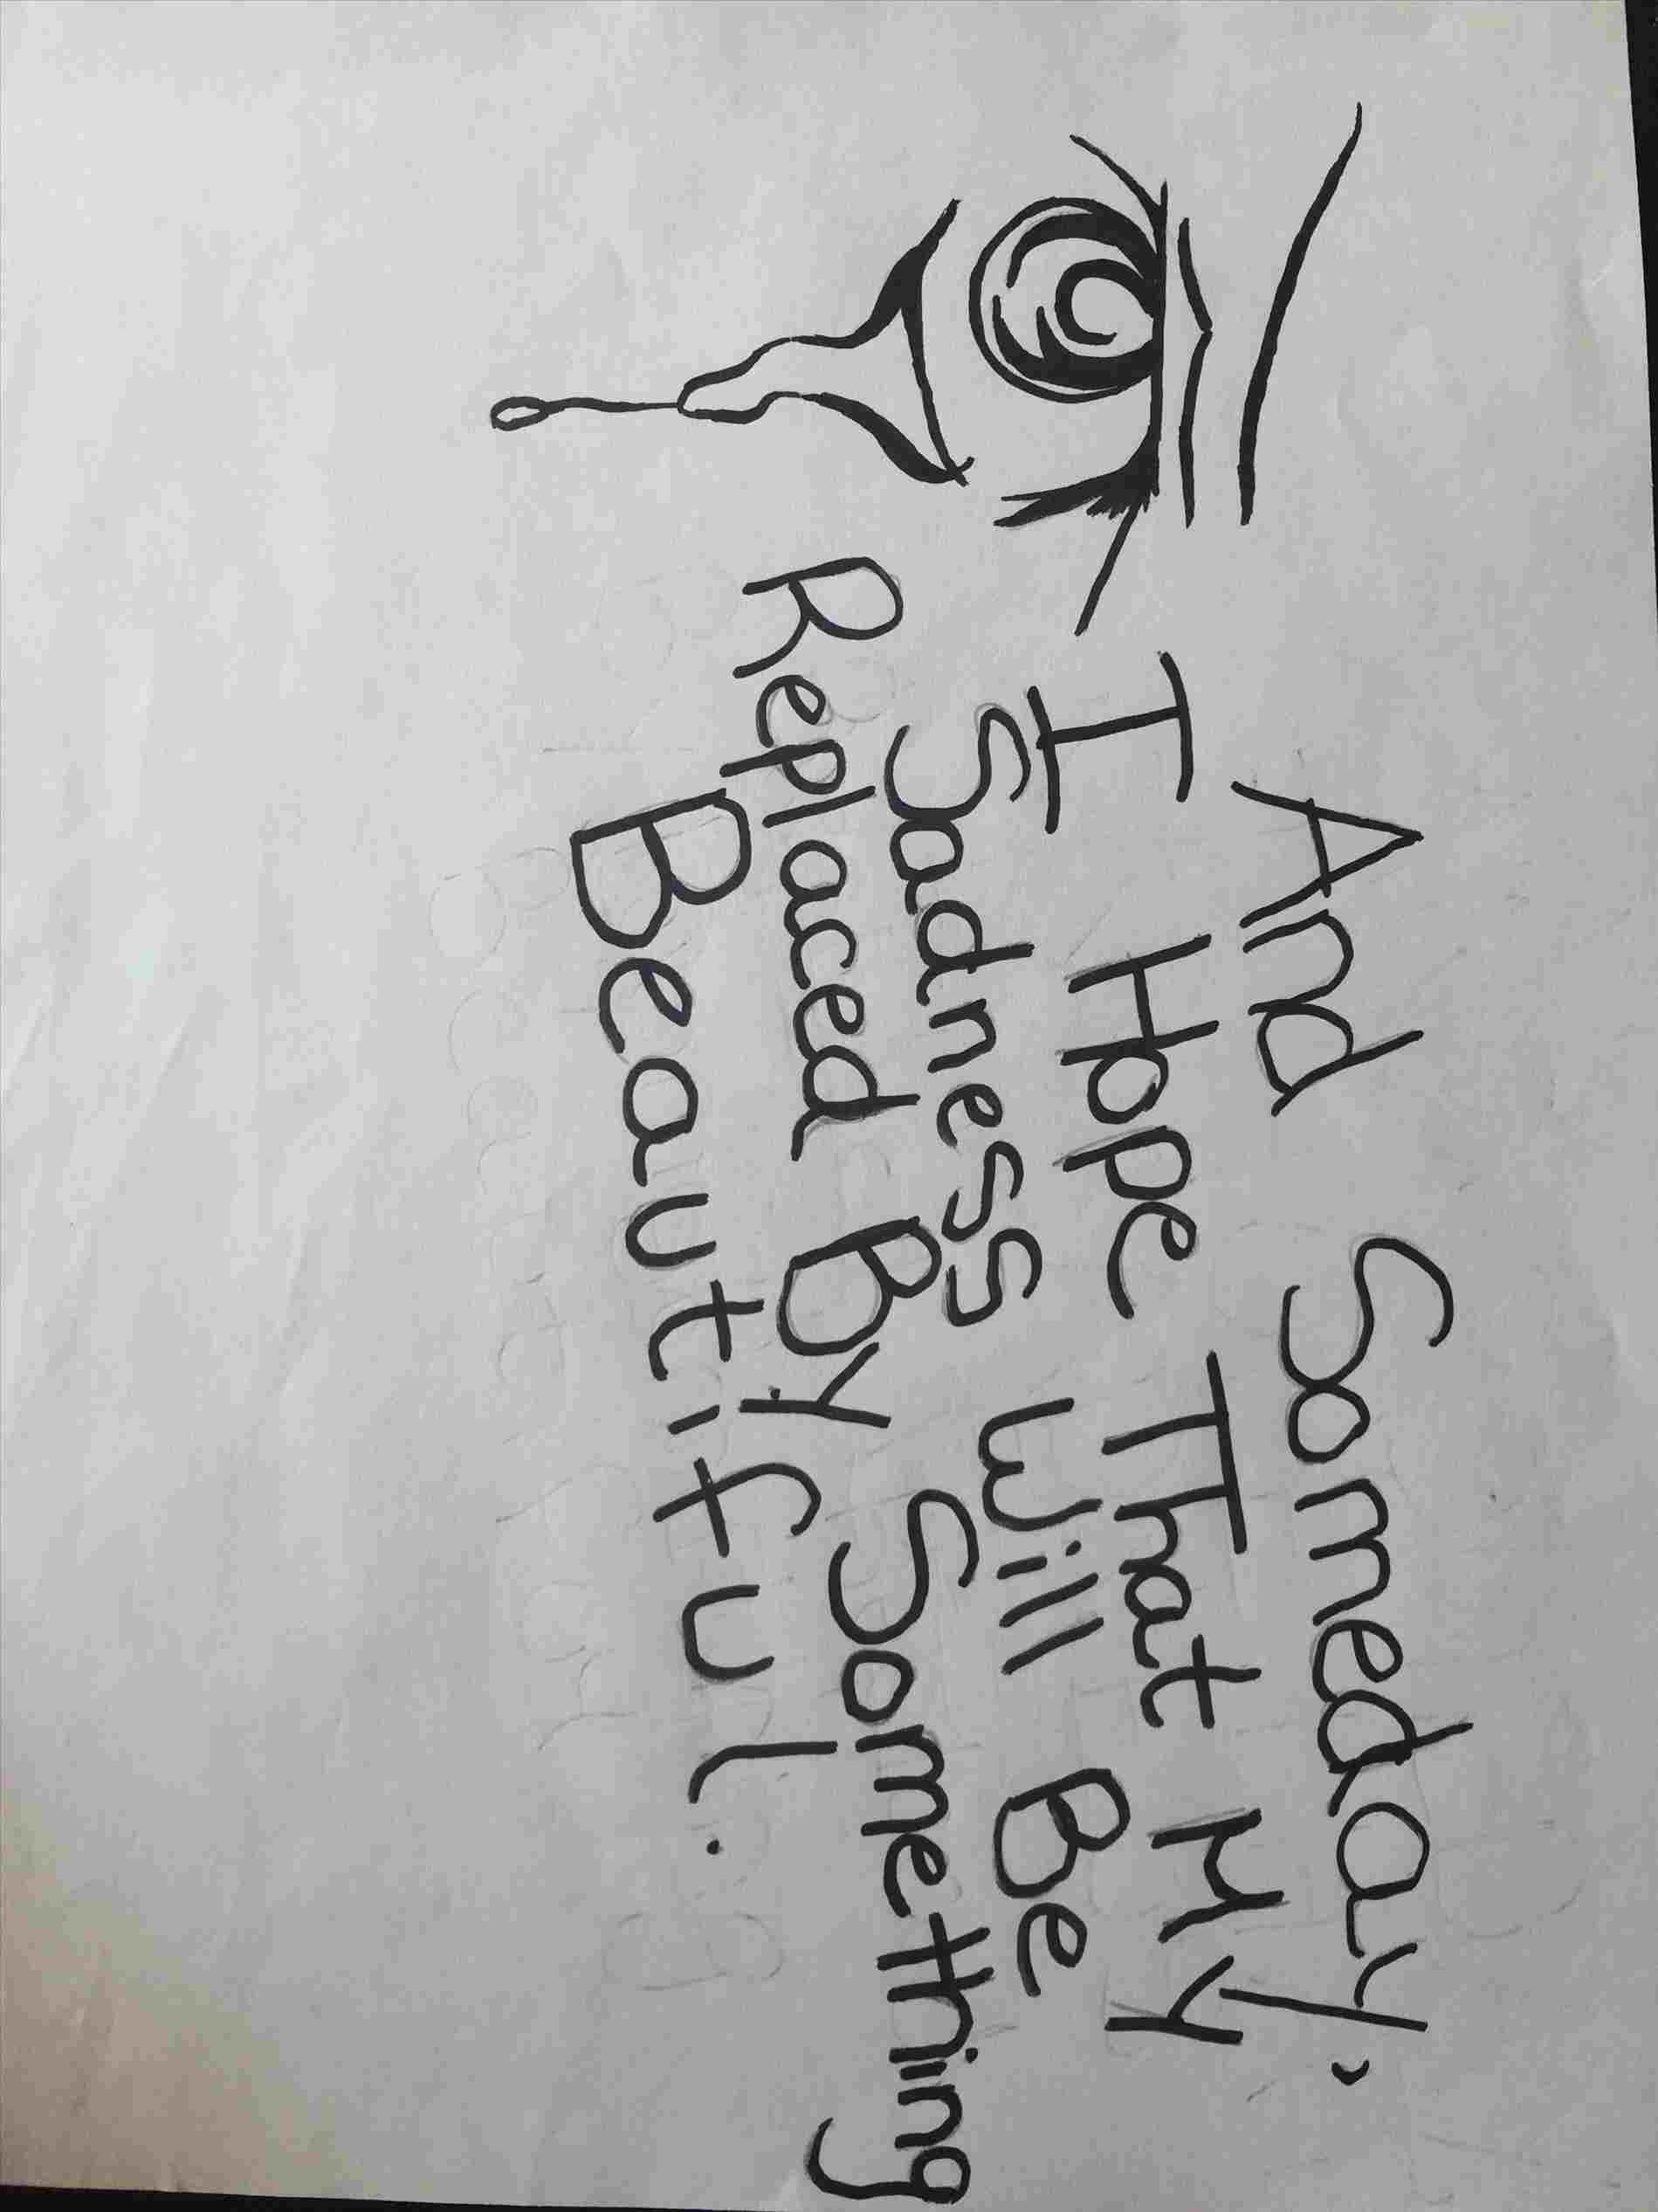 And Someday,
I Hope That My
Sadness Will Be
Replaced By Something
Beautiful.